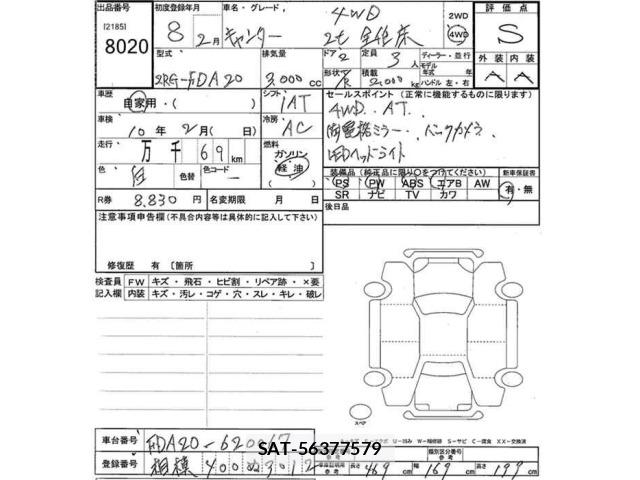 出品番号 初度登録年月 車名・グレード 4WD 2WD 評価点
[2185] 8 2月 キャンター 2t 全低床 4WD S
8020 型式 排気量 ドア 2 定員 3人 ディーラー・並行 外装 内装
モデル 年式 年
2RG-FDA20 3,000cc 形状 積載 2,000kg ハンドル 左・右 A A
車歴 自家用・( ) シフト 1AT セールスポイント(正常に機能するものに限ります)
車検 10年 2月(日) 冷房 AC 4WD. AT.
走行 万 千 69km 燃料 ガソリン 軽油 電格ミラー. バックカメラ.
色 白 色替 色コード LEDヘッドライト
装備品(純正品に限り○をつけてください) 新車保証書
PS PW ABS エアB AW 有・無
SR ナビ TV カワ
R券 8,830円 名変期限 年 月 日 後日品
注意事項申告欄(不具合内容等は具体的に記入して下さい)
修復歴 有[箇所 ]
検査員 FW キズ・飛石・ヒビ割・リペア跡・×要
記入欄 内装 キズ・汚レ・コゲ・穴・スレ・キレ・破レ
スペア
車台番号 FDA20-620067
SAT-56377579
登録番号 相模 400 ぬ 3012 長さ 469cm 幅 169cm 高さ 199cm